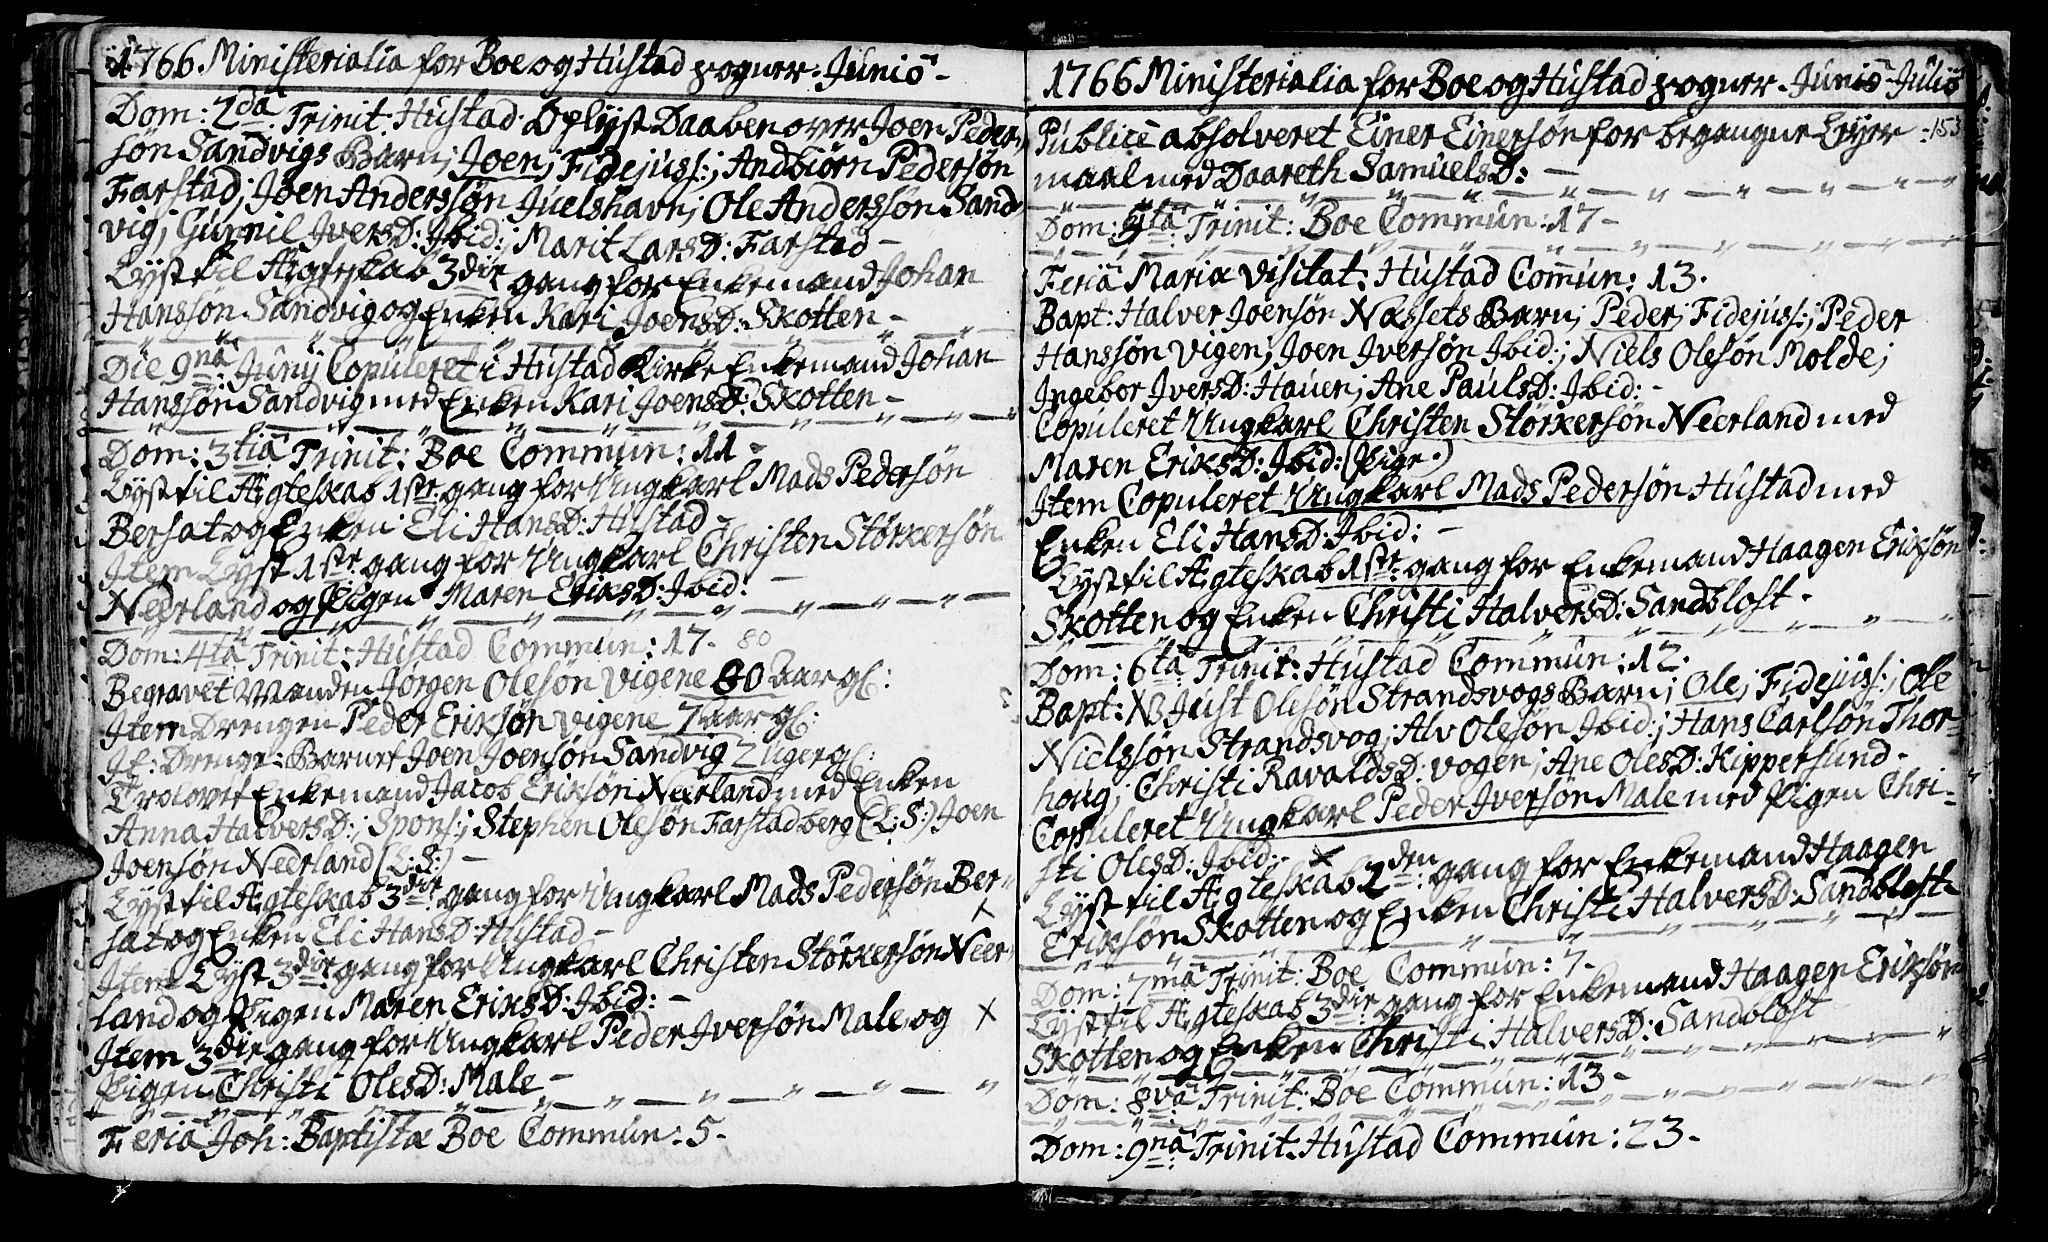 1766 Ministerialia for Boe og Hustad sogner. Junio-
Dom: 2dâ Trinit. Hustad. Oplyst Daaben over Joen Peder-
søn Sandvigs Barn; Joen; Fidejuss:; Andbiørn Pedersøn
Farstad; Joen Anderssøn Juelshavn; Ole Anderssøn Sand-
vig; Gunnil IversD: Ibid:; Marit LarsD: Farstad-
Lyst til Ægteskab 3die gang for Enkemand Johan
Hanssøn Sandvig og Enken Kari JoensD: Skotten-
Die 9nâ Junij Copuleret i Hustad Kirke Enkemand Johan
Hanssøn Sandvig med Enken Kari JoensD: Skotten-
Dom: 3tiâ Trinit: Boe Commun: 11-
Lyst til Ægteskab 1ste gang for Ungkarl Mads Pedersøn
Bersat og Enken Eli HansD: Hustad-
Item Lyst 1ste gang for Ungkarl Christen Størkersøn
Neerland og Pigen Maren EriksD: Ibid:
Dom: 4tâ Trinit: Hustad Commun: 17- 80
Begravet Manden Jørgen Olesøn Vigene 80 Aar gl:
Item Drengen Peder Eriksøn Vigene 7 aar gl:
It: Drenge-Barnet Joen Joensøn Sandvig 2 Uger gl:
Trolovet Enkemand Jacob Eriksøn Neerland med Enken
Anna HalversD:; Spons:; Stephen Olesøn Farstadberg (L:S:) Joen
Joensøn Neerland (L:S:)-
Lyst til Ægteskab 3die gang for Ungkarl Mads Pedersøn Ber-
sat og Enken Eli HansD: Hustad- x
Item Lyst 3die gang for Ungkarl Christen Størkersøn Neer-
land og Pigen Maren EriksD: Ibid:-
Item 3die gang for Ungkarl Peder Iversøn Male og x
Pigen Christi OlesD: Male-
Feria Joh: Baptistæ Boe Commun: 5-
1766 Ministerialia for Boe og Hustad sogner- Junio-Julio
Publicè absolveret Einer Einersøn for begangne Leyer- 153
maal med Daareth SamuelsD:-
Dom: 5tâ Trinit: Boe Commun: 17-
Feriâ Mariæ Visitat: Hustad Comun: 13.
Bapt: Halver Joensøn Næssets Barn; Peder; Fidejuss:; Peder
Hanssøn Vigen; Joen Iversøn Ibid:; Niels Olesøn Molde;
Ingebor IversD: Hauen; Ane PaulsD: Ibid:-
Copuleret Ungkarl Christen Størkersøn Neerland med
Maren EriksD: Ibid: (Pige.)
Item Copuleret Ungkarl Mads Pedersøn Hustad med
Enken Eli HansD: Ibid:-
Lyst til Ægteskab 1ste gang for Enkemand Haagen Eriksøn
Skotten og Enken Christi HalversD: Sandblost-
Dom: 6tâ Trinit: Hustad Commun: 12.
Bapt: NB Just Olesøn Strandsvogs Barn; Ole; Fidejuss:; Ole
Nielssøn Strandsvog; Alv Olesøn Ibid:; Hans Carlsøn Thor-
houg; Christi RavaldsD: Vogen; Ane OlesD: Kippersund-
Copuleret Ungkarl Peder Iversøn Male med Pigen Chri-
sti OlesD: Ibid:- x
Lyst til Ægteskab 2den gang for Enkemand Haagen
Eriksøn Skotten og Enken Christi HalversD: Sandblost-
Dom: 7mâ Trinit: Boe Commun: 7-
Lyst til Ægteskab 3die gang for Enkemand Haagen Eriksøn
Skotten og Enken Christi HalversD: Sandblost
Dom: 8vâ Trinit: Boe Commun: 13-
Dom: 9nâ Trinit: Hustad Commun: 23-